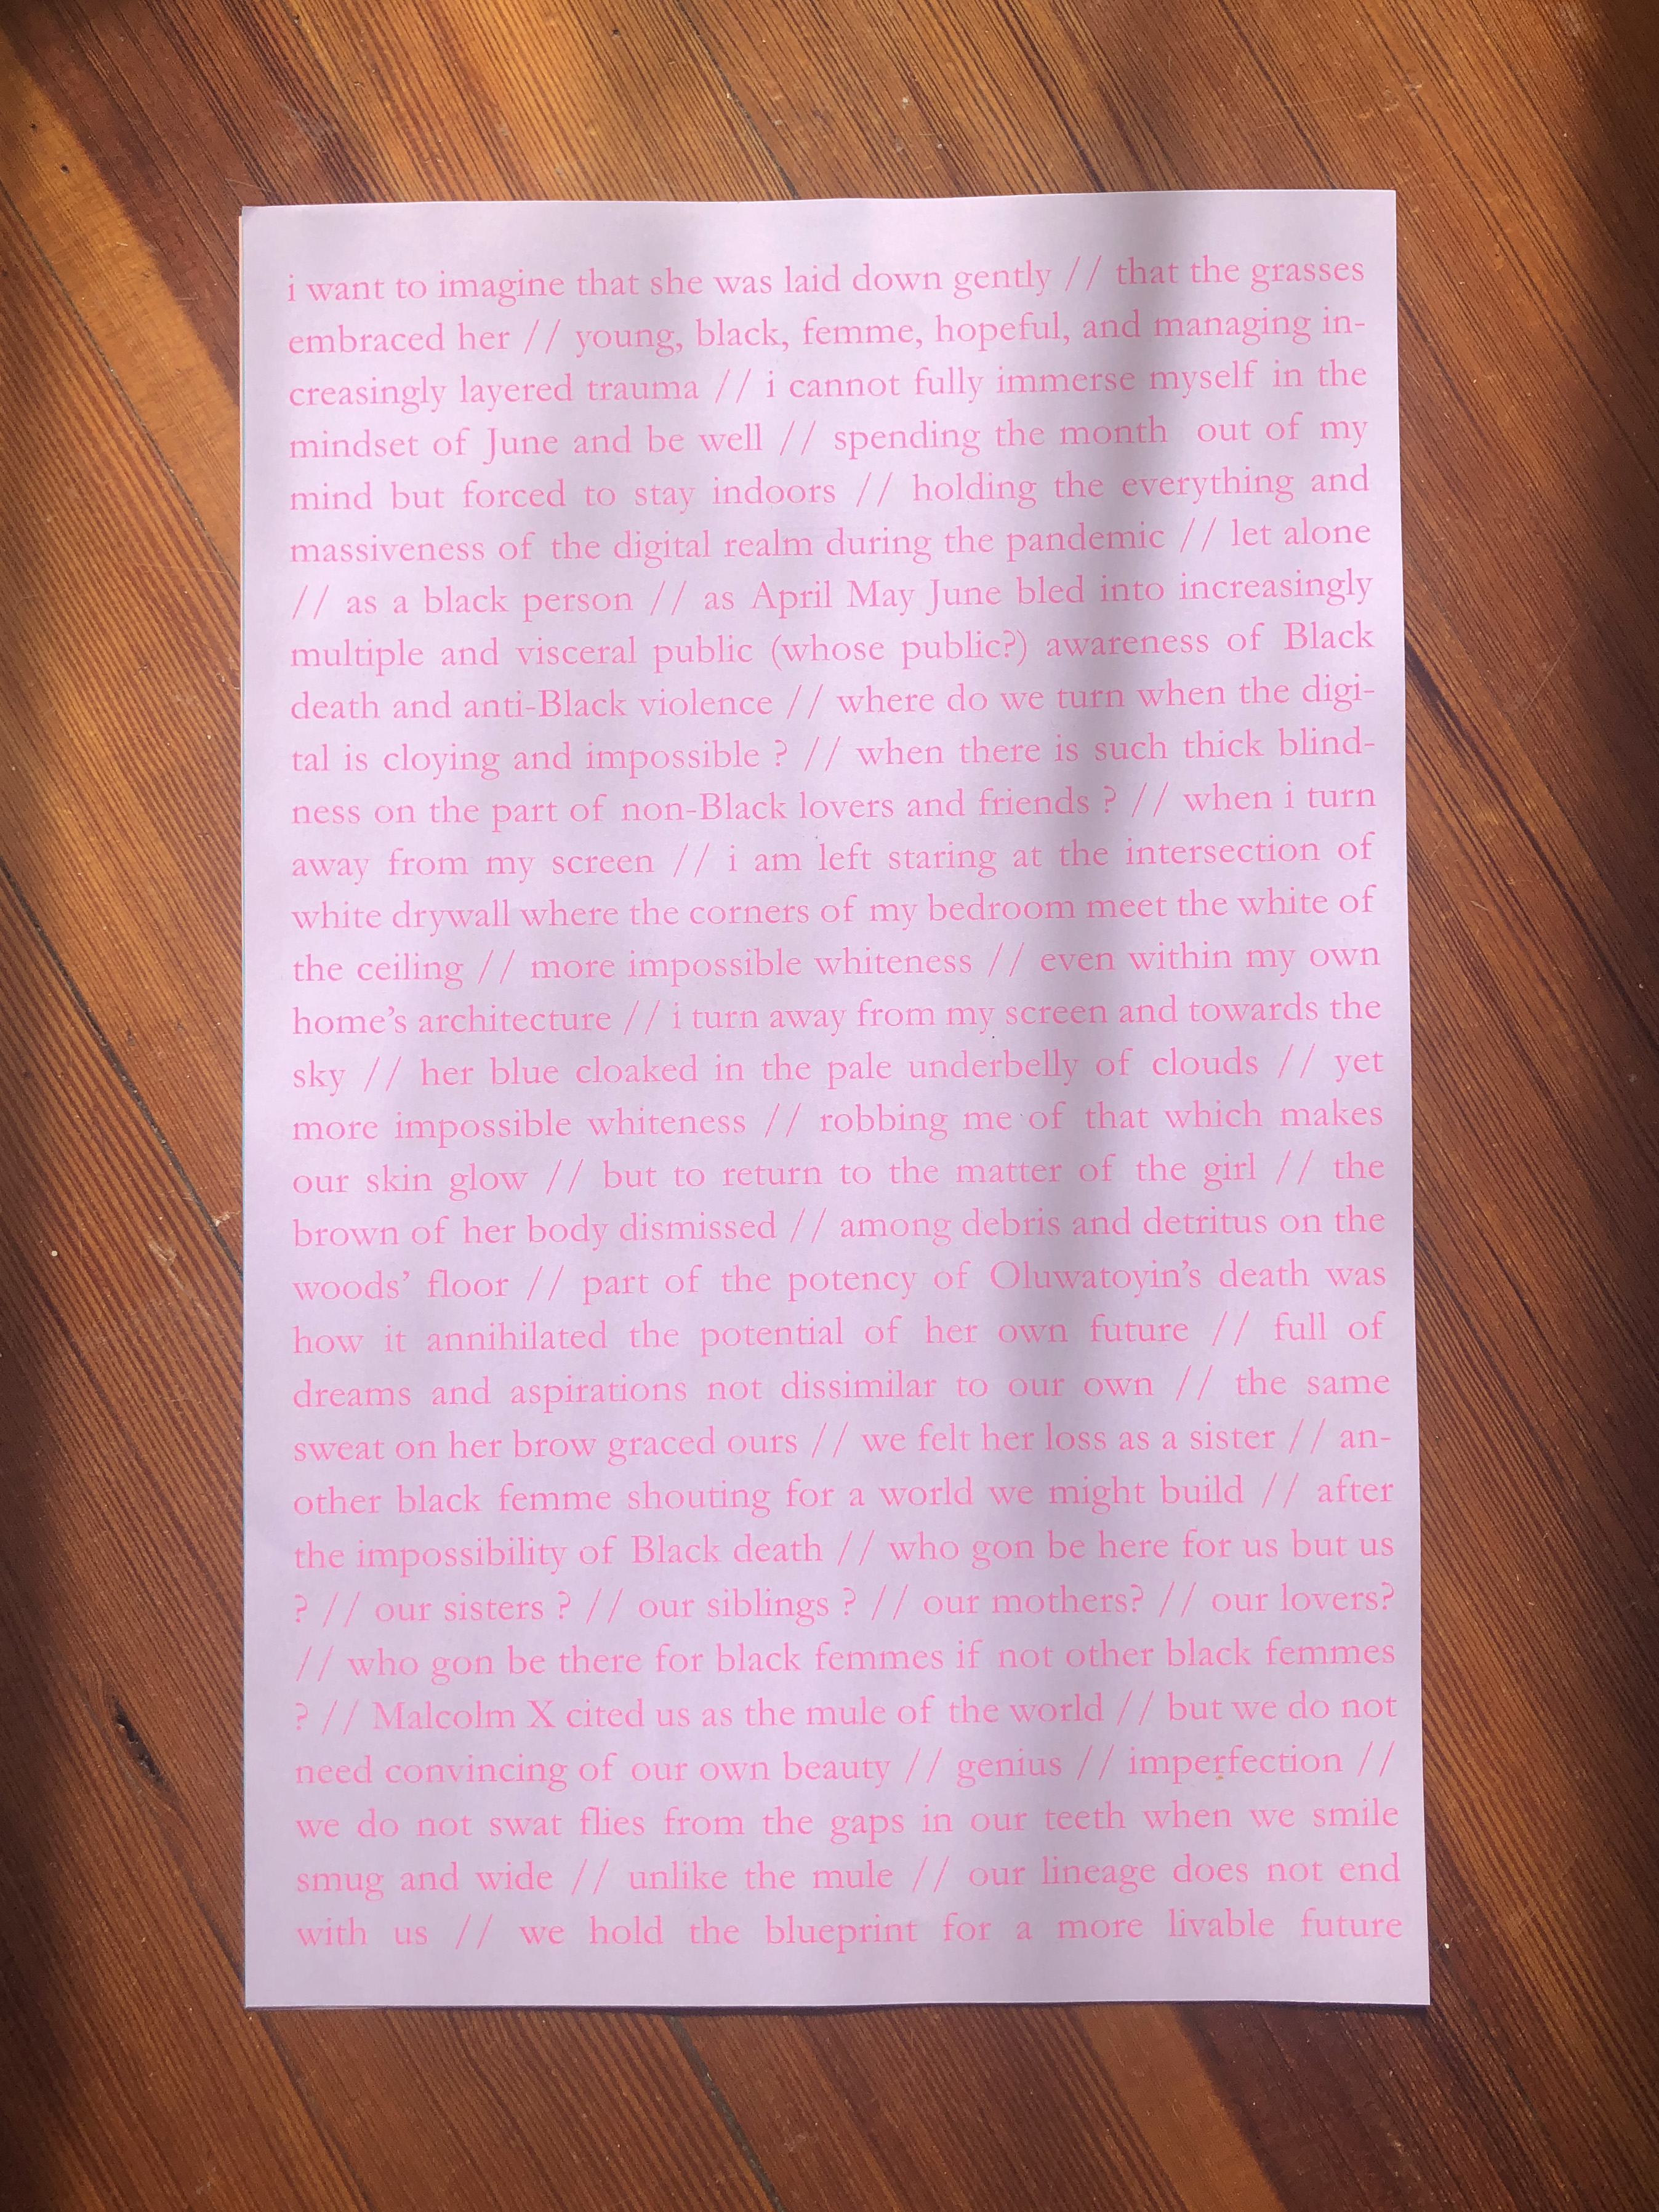 i want to imagine that she was laid down gently // that the grasses
embraced her // young, black, femme, hopeful, and managing in-
creasingly layered trauma // i cannot fully immerse myself in the
mindset of June and be well // spending the month out of my
mind but forced to stay indoors // holding the everything and
massiveness of the digital realm during the pandemic // let alone
// as a black person // as April May June bled into increasingly
multiple and visceral public (whose public?) awareness of Black
death and anti-Black violence // where do we turn when the digi-
tal is cloying and impossible ? // when there is such thick blind-
ness on the part of non-Black lovers and friends ? // when i turn
away from my screen // i am left staring at the intersection of
white drywall where the corners of my bedroom meet the white of
the ceiling // more impossible whiteness // even within my own
home’s architecture // i turn away from my screen and towards the
sky // her blue cloaked in the pale underbelly of clouds // yet
more impossible whiteness // robbing me of that which makes
our skin glow // but to return to the matter of the girl // the
brown of her body dismissed // among debris and detritus on the
woods’ floor // part of the potency of Oluwatoyin’s death was
how it annihilated the potential of her own future // full of
dreams and aspirations not dissimilar to our own // the same
sweat on her brow graced ours // we felt her loss as a sister // an-
other black femme shouting for a world we might build // after
the impossibility of Black death // who gon be here for us but us
? // our sisters ? // our siblings ? // our mothers? // our lovers?
// who gon be there for black femmes if not other black femmes
? // Malcolm X cited us as the mule of the world // but we do not
need convincing of our own beauty // genius // imperfection //
we do not swat flies from the gaps in our teeth when we smile
smug and wide // unlike the mule // our lineage does not end
with us // we hold the blueprint for a more livable future